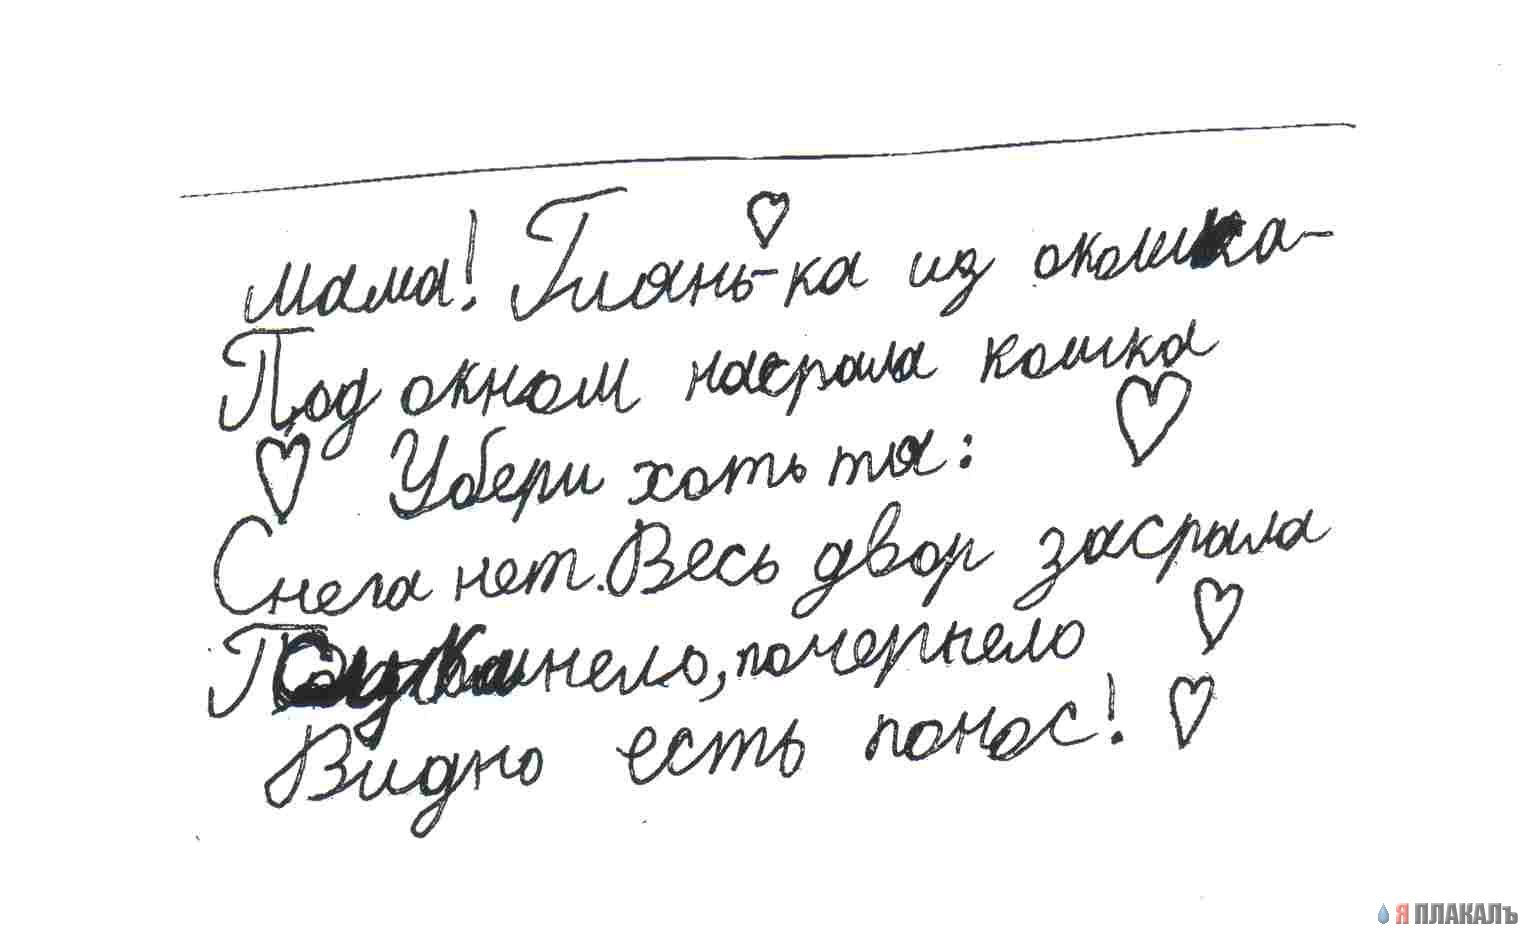 мама! Глянь-ка из окошка-
Под окном насрала кошка
Убери хоть ты:
Снега нет. Весь двор засрала
почернело
Видно есть понос!
Я ПЛАКАЛЪ